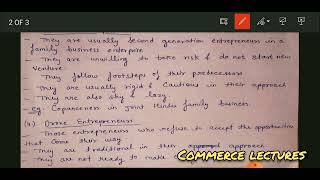 2 OF 3
- They are usually second generation entrepreneurs in a
family business enterprise
- They are unwilling to take risk & do not start new
venture
- They follow footsteps of their predecessors
- They are usually rigid & cautious in their approach
- They are also shy & lazy
- eg: Coparceners in Joint Hindu family business
(4.) Drone Entrepreneurs
- Those entrepreneurs who refuse to accept the opportunities
that come their way
- They are traditional in their approach
- They are not ready to make
COMMERCE LECTURES